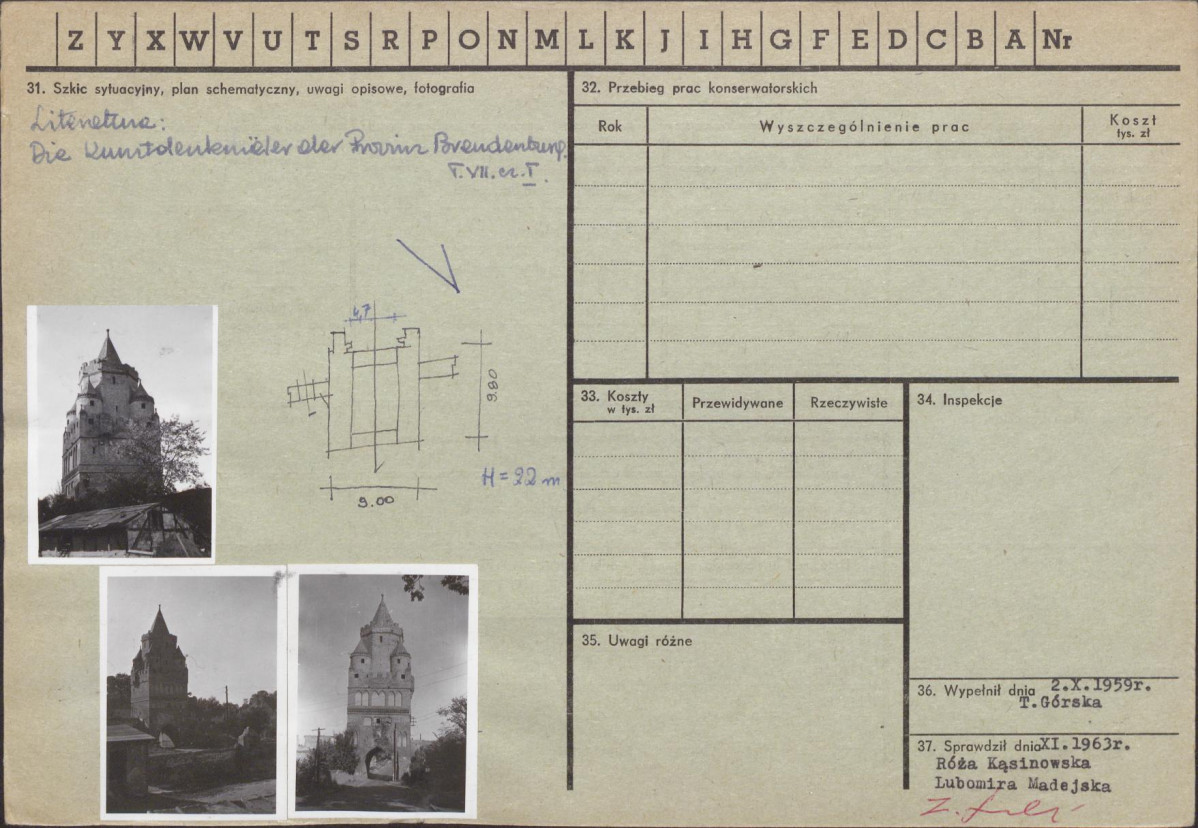 Z Y X W V U T S R P O N M L K J I H G F E D C B A Nr
31. Szkic sytuacyjny, plan schematyczny, uwagi opisowe, fotografia
Literatura:
Die Kunstdenkmäler der Provinz Brandenburg.
T. VII. cz. I.
4,7
9.80
H = 22 m
9.00
32. Przebieg prac konserwatorskich
Rok
Wyszczególnienie prac
Koszt
tys. zł
33. Koszty
w tys. zł
Przewidywane
Rzeczywiste
34. Inspekcje
35. Uwagi różne
36. Wypełnił dnia 2.X.1959r.
T.Górska
37. Sprawdził dnia XI.1963r.
Róża Kąsinowska
Lubomira Madejska